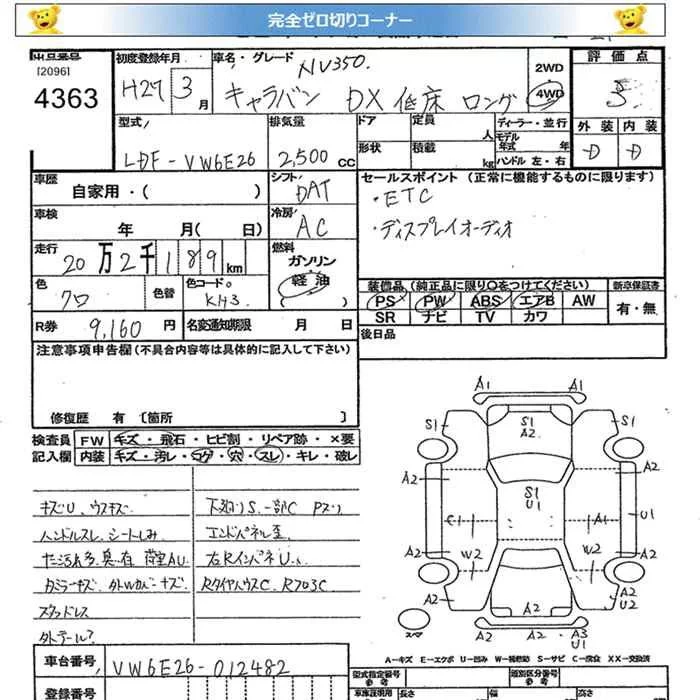 完全ゼロ切りコーナー
出品番号
[2096]
4363
初度登録年月
H27 3 月
車名・グレード
NV350.
キャラバン DX 低床 ロング
2WD
4WD
評価点
3
外装 内装
D D
型式
LDF-VW6E26
排気量
2,500 cc
ドア
形状
定員
人
積載
kg
ディーラー・並行
モデル年式 年
ハンドル 左・右
車歴
自家用・( )
シフト
DAT
セールスポイント (正常に機能するものに限ります)
・ETC
・ディスプレイオーディオ
車検
年 月( 日)
冷房
AC
走行
20万2千189km
燃料
ガソリン
軽油
( )
色
クロ
色替
色コードNo.
KH3
装備品(純正品に限り○をつけてください)
新車保証書
PS PW ABS エアB AW
SR ナビ TV カワ
有・無
R券 9,160 円
名変通知期限 月 日
後日品
注意事項申告欄(不具合内容等は具体的に記入して下さい)
修復歴 有 〔箇所 〕
検査員記入欄
FW キズ・飛石・ヒビ割・リペア跡・×要
内装 キズ・汚レ・コゲ・穴・スレ・キレ・破レ
キズU、ウスキズ
ハンドルスレ、シートしみ
荷室AU
スタッドレス
外テール?
下廻りS、一部C Pズリ
エンドパネル歪
左RインパネU
RタイヤハウスC、R703C
A1 A1
S1 S1
S1
A2
A2 A2
S1
U1
C1 A1 U1
W2 W2
A2 A2
A2 A2 A2
U2
スペ
A2 A2 A3
U1
A-キズ E-エクボ U-凹み W-補修跡 S-サビ C-腐食 XX-交換済
車台番号 VW6E26-012482
登録番号
型式指定番号
参考
類別区分番号
参考
車庫証明用
長さ
幅
高さ